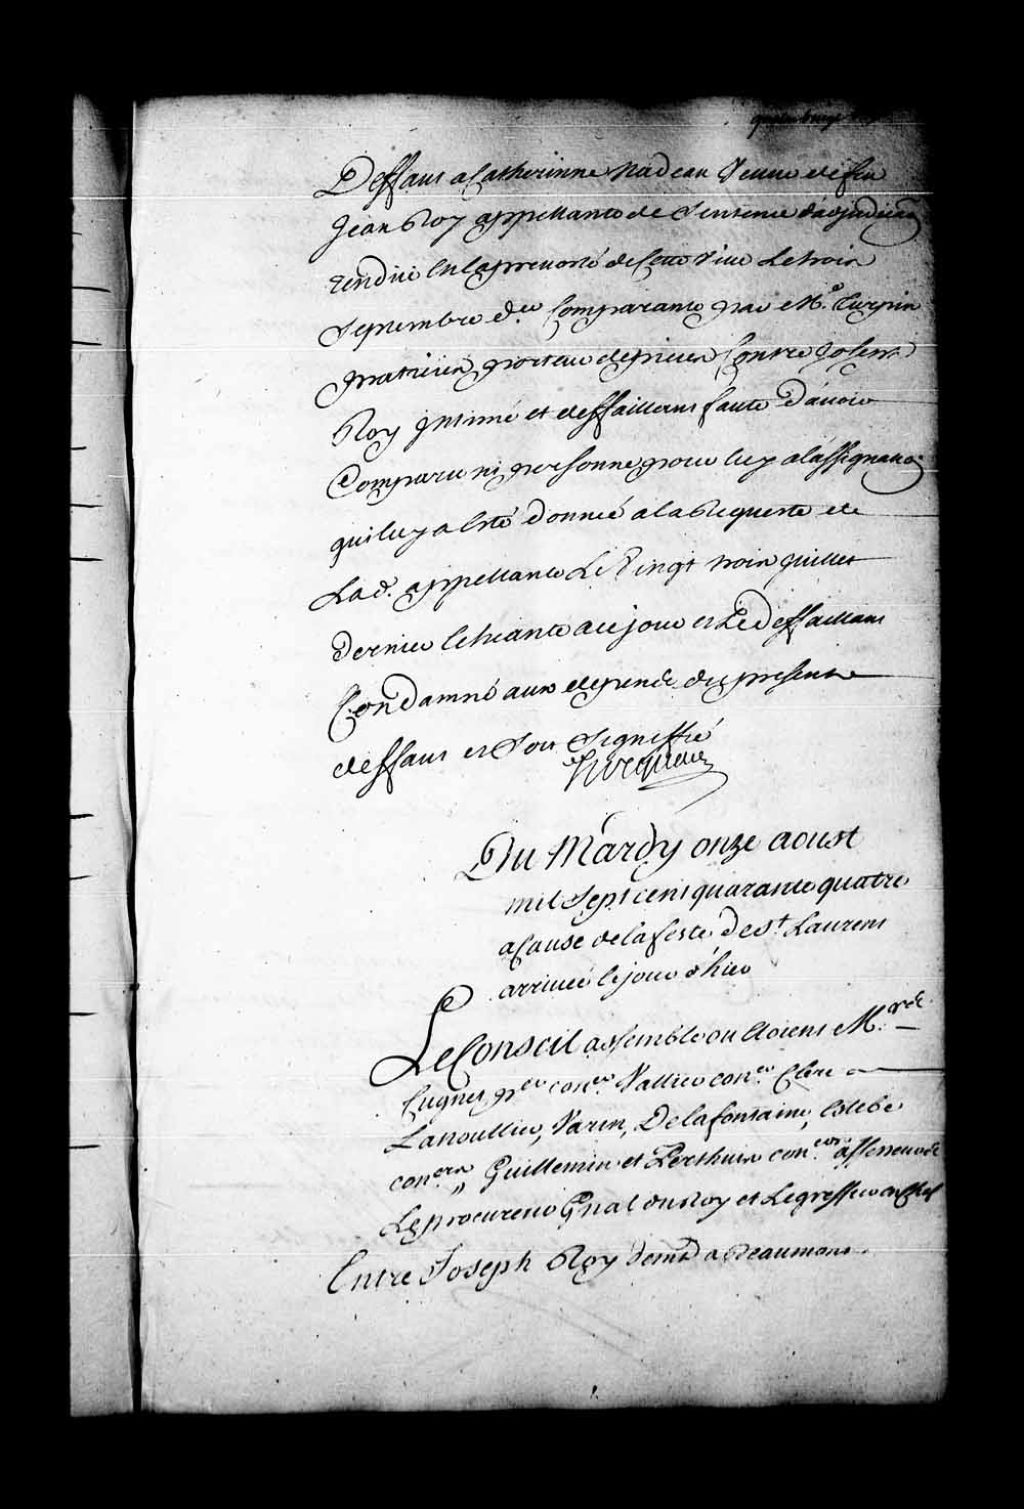 Deffaut a Catherinne Nadeau Veuve de feu
Jean Roy appellante de Sentence dadjudicaon
rendüe En la prevosté de Cette Ville Le trois
Septembre d.er Comparante par Me. Turpin
praticien porteur de pieces Contre Joseph
Roy Intimé et deffaillant faute d'avoir
Comparu ni personne pour luy a l'assignaon
qui luy a Eté donnée a la Requeste de
Lad. appellante Le Vingt trois Juillet
dernier Echeante a ce jour et Le deffaillant
Condamné aux depends du present
deffaut et Soit Signiffié
Du Mardy onze aoust
mil Sept cent quarante quatre
a Cause de la feste de St Laurent
arrivée le jour d'hier
Le Conseil assemblé ou Etoient M.rs
Cugnet p.er con.er Vallier con.er Clerc
Lanoullier, Varin, De lafontaine, Estebe
con.ers Guillemin et Perthuis con.ers assesseurs
Le procureur Gnal du Roy et Le greffier en Chef
Entre Joseph Roy demt a Beaumont